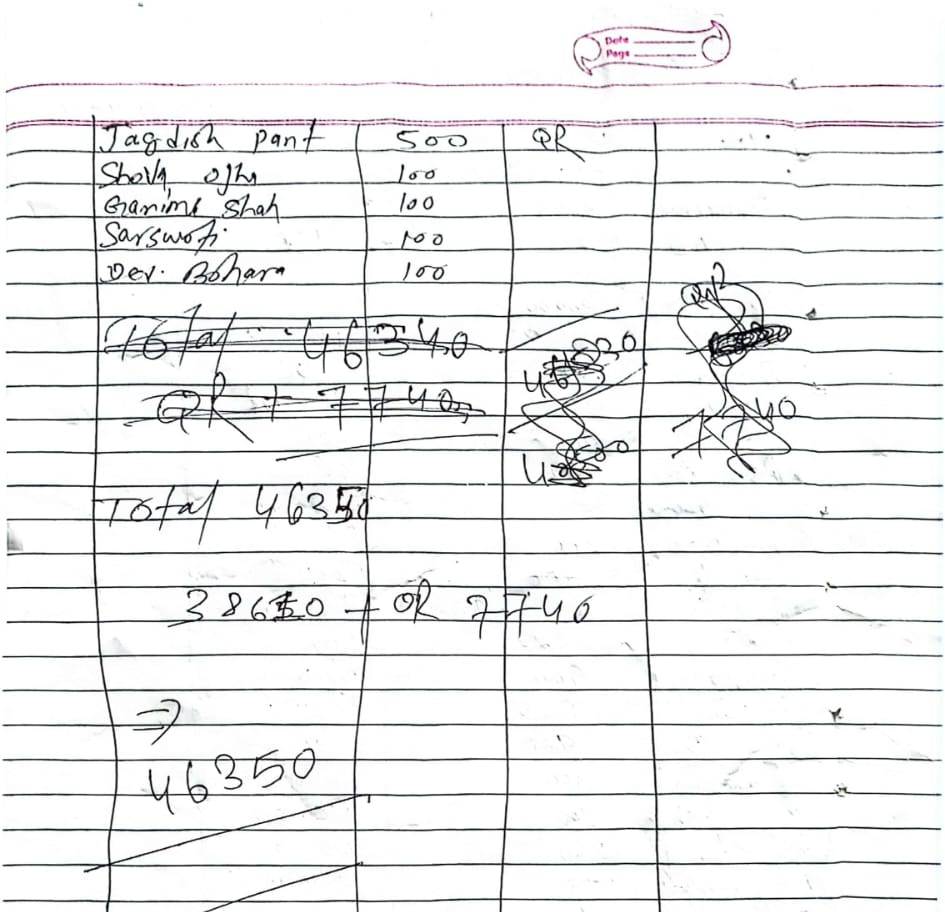 Date
Page
Jagdish pant 500 QR
Shova ojha 100
Ganima Shah 100
Sarswoti 100
Dev. Bohara 100
Total 46340
QR + 7740
7740
Total 46350
38610 + QR 7740
⇒
46350